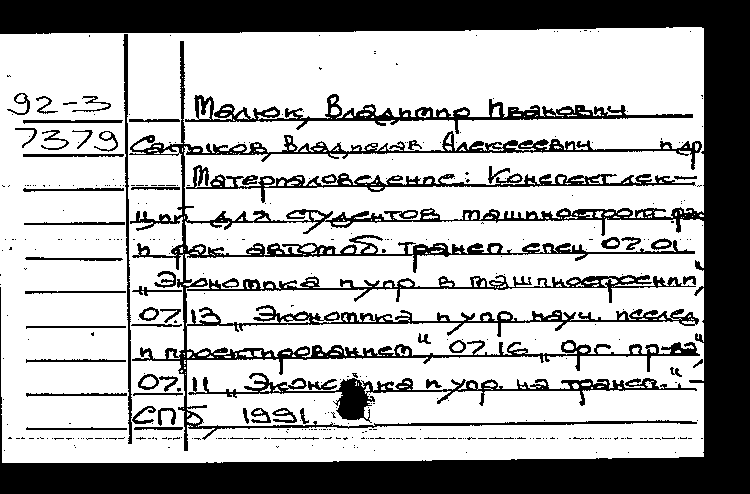 92-3 Малюк, Владимир Иванович
7379 Сатыков, Владислав Алексеевич и др.
Материаловедение: Конспект лек-
ций для студентов машиностроит. фак.
и фак. автомоб. трансп. спец. 07.01
„Экономика и упр. в машиностроении",
07.13 „Экономика и упр. науч. исслед.
и проектированием", 07.16 „Орг. пр-ва",
07.11 „Экономика и упр. на трансп.". -
СПб, 1991.